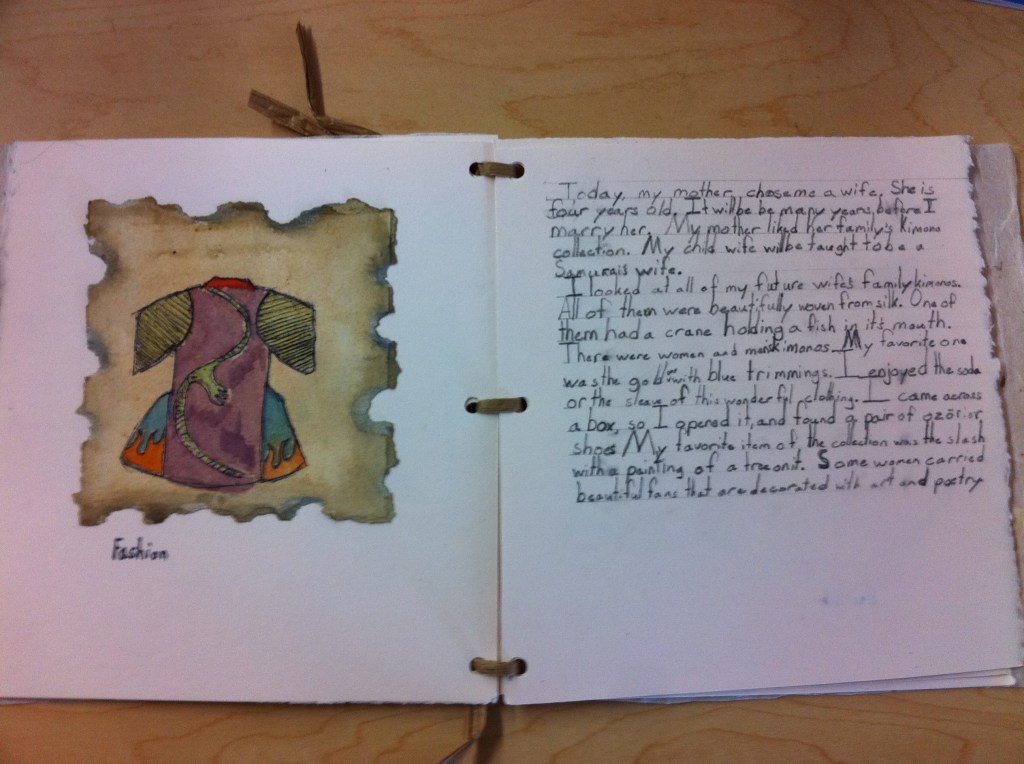 Fashion
Today, my mother, chose me a wife. She is
four years old. It will be be many years, before I
marry her. My mother liked her family's Kimono
collection. My child wife will be taught to be a
Samurais wife.
I looked at all of my future wife's family kimonos.
All of them were beautifully woven from silk. One of
them had a crane holding a fish in it's mouth.
There were women and mens kimonos. My favorite one
was the gold one with blue trimmings. I enjoyed the soda
or the sleave of this wonderful clothing. I came across
a box, so, I opened it, and found a pair of gzori or
shoe. My favorite item of the collection was the slash
with a painting of a tree on it. Some women carried
beautiful fans that are decorated with art and poetry